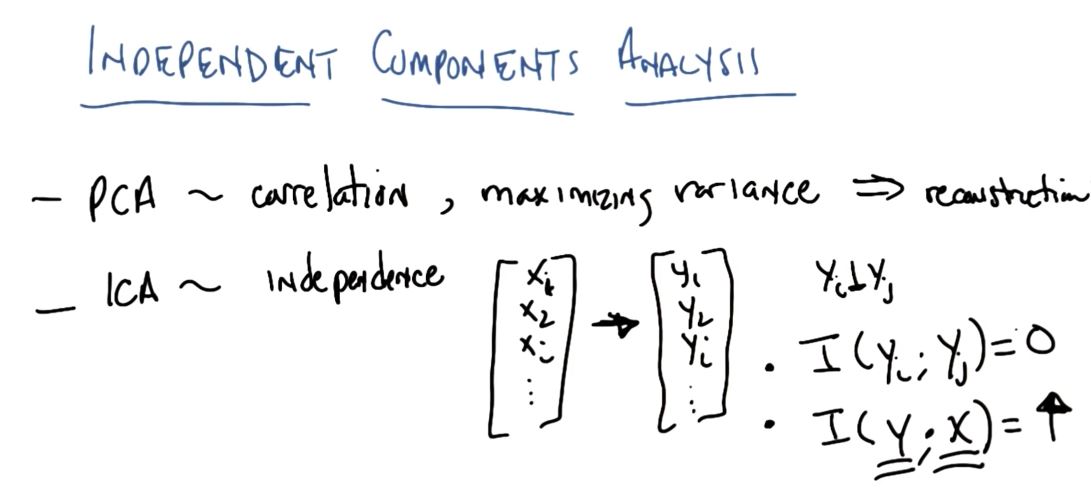 INDEPENDENT COMPONENTS ANALYSIS
- PCA ~ correlation, maximizing variance ⇒ reconstruction
- ICA ~ independence [x₁ x₂ xᵢ ⋮] → [y₁ y₂ yᵢ ⋮] yᵢ⊥yⱼ
· I(yᵢ; yⱼ)=0
· I(y; x)=↑